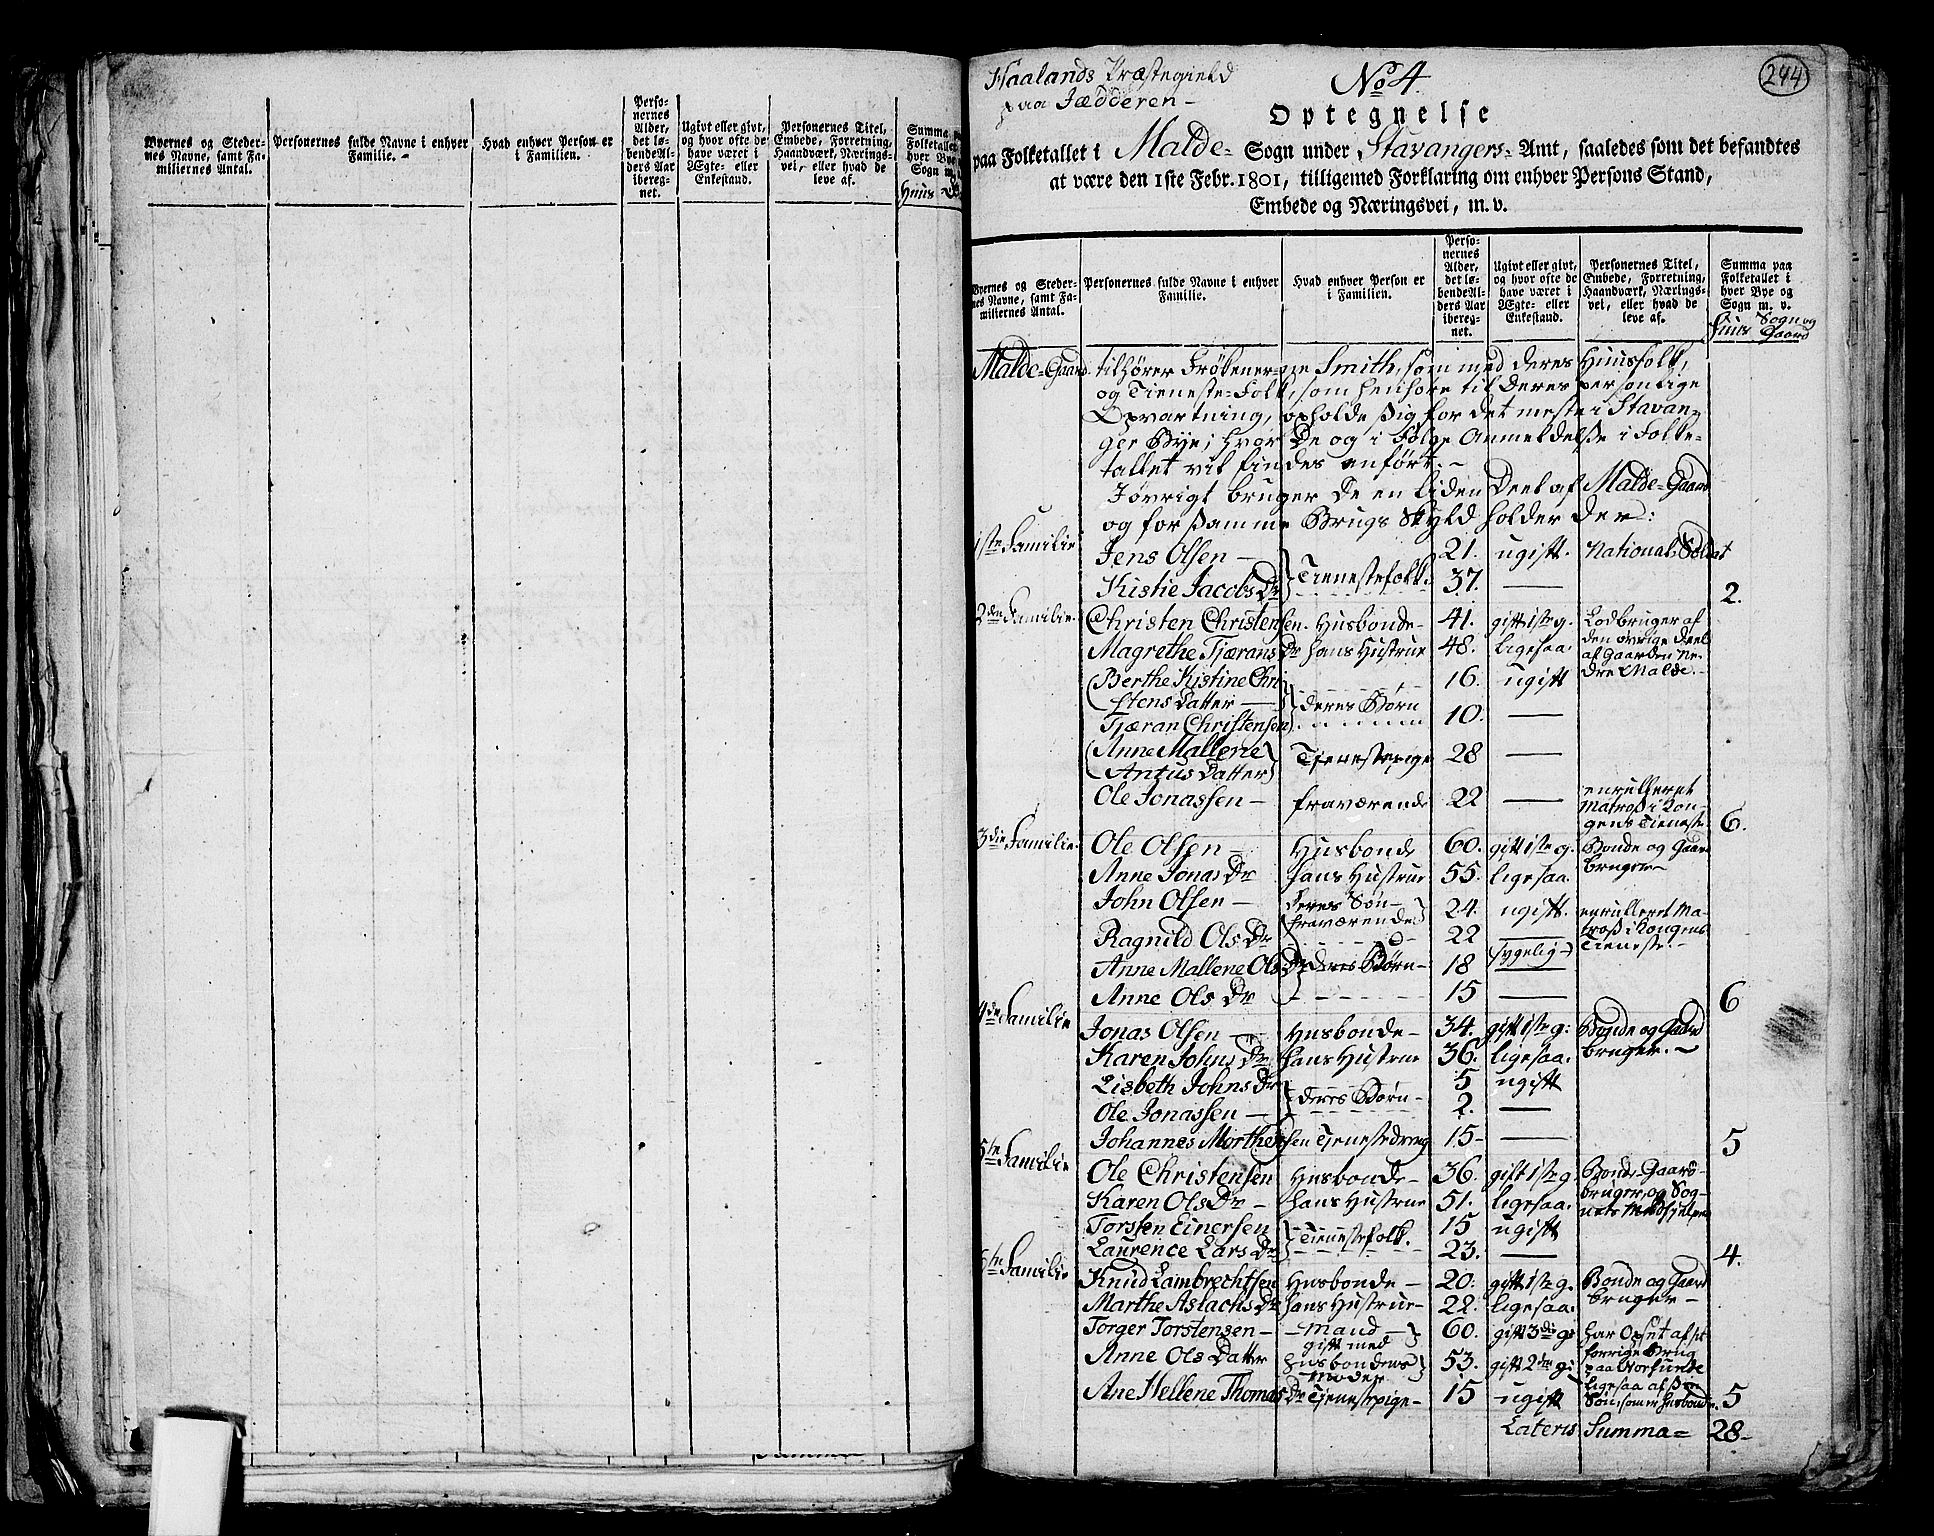 Byernes og Steder-
nes Navne, samt Fa-
miliernes Antal.
Personernes fulde Navne i enhver
Familie.
Hvad enhver Person er
i Familien.
Perso-
nernes
Alder,
det lø-
bende Al-
ders Aar
ibereg-
net.
Ugivt eller givt,
og hvor ofte de
have været i
Ægte- eller
Enkestand.
Personernes Titel,
Embede, Forretning,
Haandværk, Nærings-
vei, eller hvad de
leve af.
Summa paa
Folketallet
hver Bye
Sogn m.
Huus
Haalands Præstegield
paa Jædderen-
No 4.
244
Optegnelse
paa Folketallet i Malde- Sogn under Stavangers- Amt, saaledes som det befandtes
at være den 1ste Febr. 1801, tilligemed Forklaring om enhver Persons Stand,
Embede og Næringsvei, m. v.
Byernes og Steder-
nes Navne, samt Fa-
miliernes Antal.
Personernes fulde Navne i enhver
Familie.
Hvad enhver Person er
i Familien.
Perso-
nernes
Alder,
det lø-
bende Al-
ders Aar
ibereg-
net.
Ugivt eller givt,
og hvor ofte de
have været i
Ægte- eller
Enkestand.
Personernes Titel,
Embede, Forretning,
Haandværk, Nærings-
vei, eller hvad de
leve af.
Summa paa
Folketallet i
hver Bye og
Sogn m. v.
Huus Sogn og
Gaard
Malde-Gaard tilhører Frøkenerne Smith, som med deres Huusfolk,
og Tieneste-Folk, som henhøre til deres personlige
Opvartning, opholde sig for det meste i Stavan-
ger Bye; hvor De og i Følge Anmeldelße i Folke-
tallet vil findes anført.-
Iøvrigt bruger De en liden Deel af Malde-Gaard
og for ßamme Brugs Skyld holder der:
1ste Familie Jens Olsen - Tienestefolk 21. ugift. National Soldat
Kistie Jacobs Dr 37. — 2.
2den Familie Christen Christensen. Husbonde- 41. gift 1ste g. Lodbruger af
den øvrige Deel
af Gaarden Ne-
dre Malde.
Magrethe Tjærans Dr hans Hustrue 48. ligesaa.
Berthe Kistine Chri-
stens Datter — deres Børn 16. ugift
Tjæran Christensen 10. —
Anne Mallene
Antus Datter Tjenestepige 28 —
Ole Jonassen - fraværende 22 — enrulleret
Matroß i Kon-
gens Tieneste 6.
3die Familie Ole Olsen - Husbonde 60. gift 1ste g. Bonde og Gaard
bruger-
Anne Jonas Dr hans Hustrue 55. ligesaa.
John Olsen - deres Søn-
fraværende 24. ugift. enrulleret Ma-
troß i Kongens
Tieneste.-
Ragnild Ols Dr 22 —
Anne Mallene Ols Dr deres Børn- 18 sygelig-
Anne Ols Dr 15 — 6
4de Familie Jonas Olsen - Husbonde- 34. gift 1ste g: Bonde og Gaard
bruger.-
Karen Johns Dr hans Hustrue 36. ligesaa.
Lisbeth Johns Dr deres Børn- 5 ugift
Ole Jonassen - 2. —
Johannes Morthensen Tjenestedreng 15- — 5
5te Familie Ole Christensen Husbonde- 36. gift 1ste g. Bonde-Gaard-
bruger, og Sog-
nets Medhjelper
Karen Ols Dr - hans Hustrue 51. ligesaa.
Torsten Einersen Tienestefolk. 15 ugift
Laurence Lars Dr 23. — 4.
6te Familie Knud Lambrechtsen Husbonde- 20. gift 1ste g. Bonde og Gaard
bruger-
Marthe Aslachs Dr hans Hustrue- 22. ligesaa.
Torger Torstensen - - Mand - 60. gift 3die g: har Opset af sit
forrige Brug
paa Norsunde
Anne Ols Datter gift med
husbondens
moder 53. gift 2den g: ligesaa af sin
Søn, som er husbonde.
Ane Hellene Thomas Dr Tjenestpige- 15 ugift 5
Lateris Summa= 28-